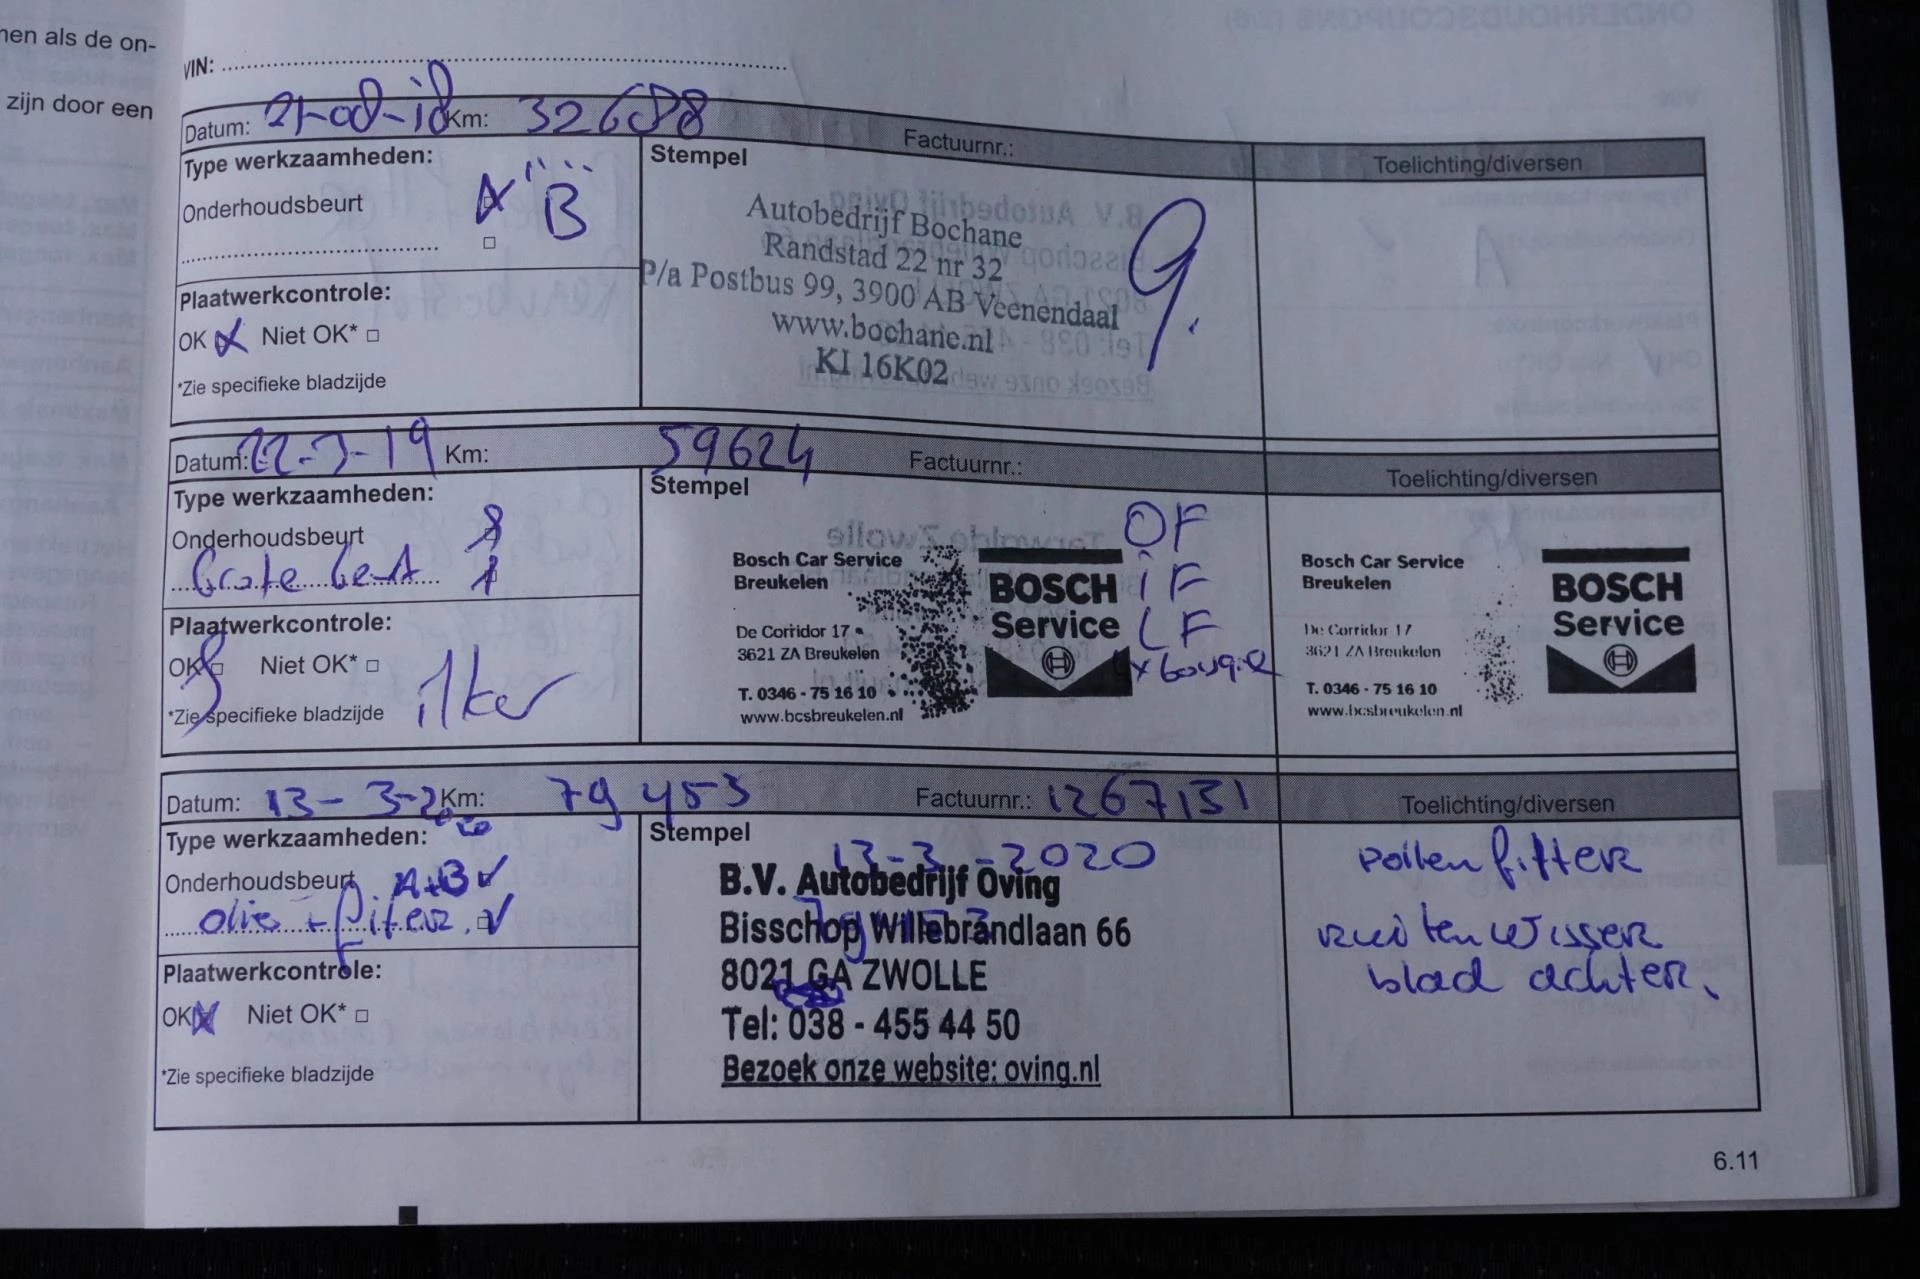 nen als de on-
zijn door een
VIN:
Datum: 21-08-18 Km: 32688 Factuurnr.: Toelichting/diversen
Type werkzaamheden:
Onderhoudsbeurt "B"
Plaatwerkcontrole:
OK Niet OK*
*Zie specifieke bladzijde
Stempel
Autobedrijf Bochane
Randstad 22 nr 32
P/a Postbus 99, 3900 AB Veenendaal
www.bochane.nl
KI 16K02
Datum: 22-7-19 Km: 59624 Factuurnr.: Toelichting/diversen
Type werkzaamheden:
Onderhoudsbeurt
Grote beurt
Plaatwerkcontrole:
OK Niet OK*
*Zie specifieke bladzijde
ilker
Stempel
Bosch Car Service
Breukelen
De Corridor 17
3621 ZA Breukelen
T. 0346 - 75 16 10
www.bcsbreukelen.nl
BOSCH
Service
OF
iF
LF
4x bougie
Bosch Car Service
Breukelen
De Corridor 17
3621 ZA Breukelen
T. 0346 - 75 16 10
www.bcsbreukelen.nl
BOSCH
Service
Datum: 13-3-2020 Km: 79453 Factuurnr.: 1267131 Toelichting/diversen
Type werkzaamheden:
Onderhoudsbeurt A+B
olie + filter.
Plaatwerkcontrole:
OK Niet OK*
*Zie specifieke bladzijde
Stempel
13-3-2020
B.V. Autobedrijf Oving
Bisschop Willebrandlaan 66
8021 GA ZWOLLE
Tel: 038 - 455 44 50
Bezoek onze website: oving.nl
pollenfilter
ruitenwisser
blad achter.
6.11